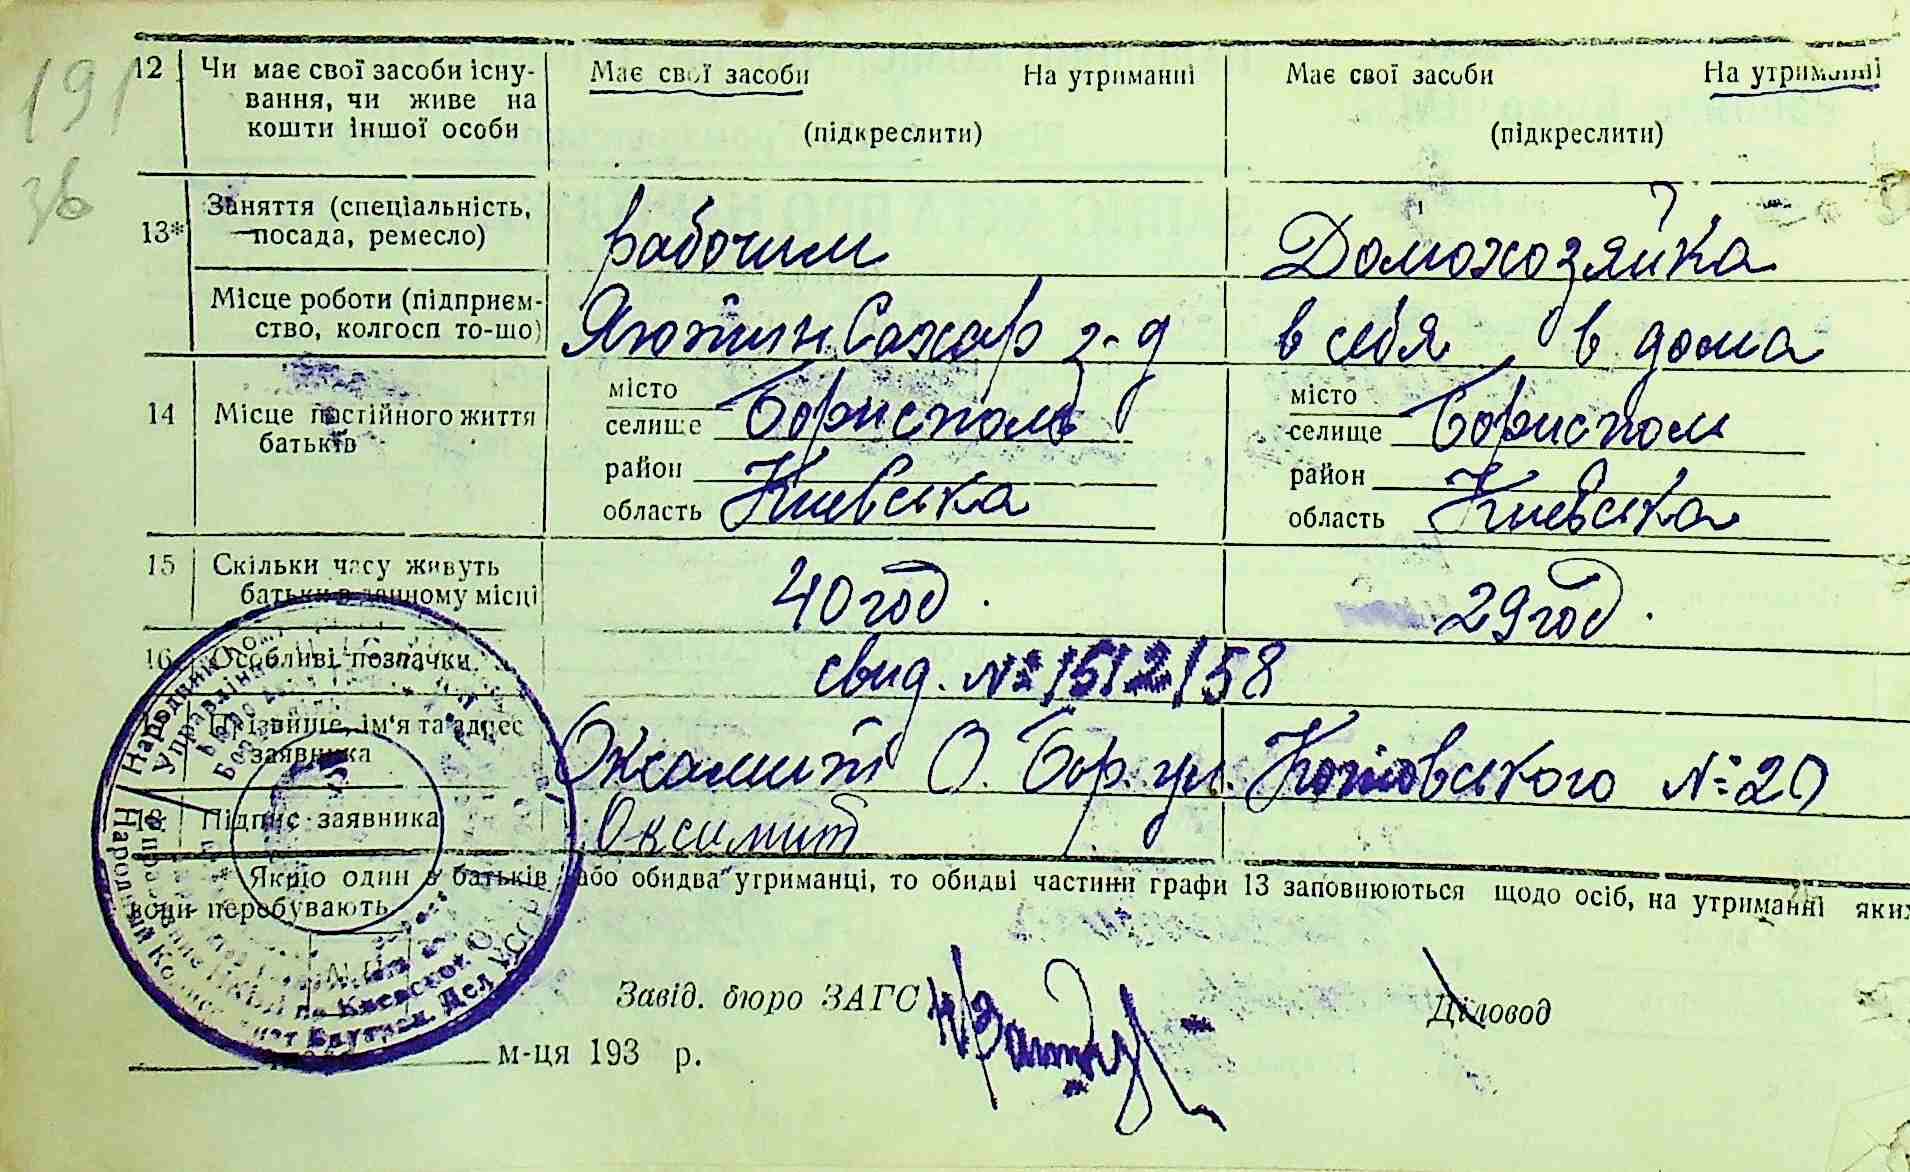 191
зв
12 Чи має свої засоби існу- Має свої засоби На утриманні Має свої засоби На утриманні
вання, чи живе на
кошти іншої особи (підкреслити) (підкреслити)
13* Заняття (спеціальність, рабочим Домохозяйка
посада, ремесло)
Місце роботи (підприєм- Сахар з-д в себя в дома
ство, колгосп то-що)
14 Місце постійного життя місто місто
батьків селище Борисполь селище Бориспол
район район
область Киевська область Киевська
15 Скільки часу живуть 40 год. 29 год.
батьки в данному місці
16 Особливі позначки свид. № 1512/58
Прізвище, ім'я та адрес Оксамит О. Бор. ул. Котовського № 20
заявника
Підпис заявника Оксамит
Якщо один з батьків або обидва утриманці, то обидві частини графи 13 заповнюються щодо осіб, на утриманні яких
вони перебувають
Завід. бюро ЗАГС Діловод
м-ця 193 р.